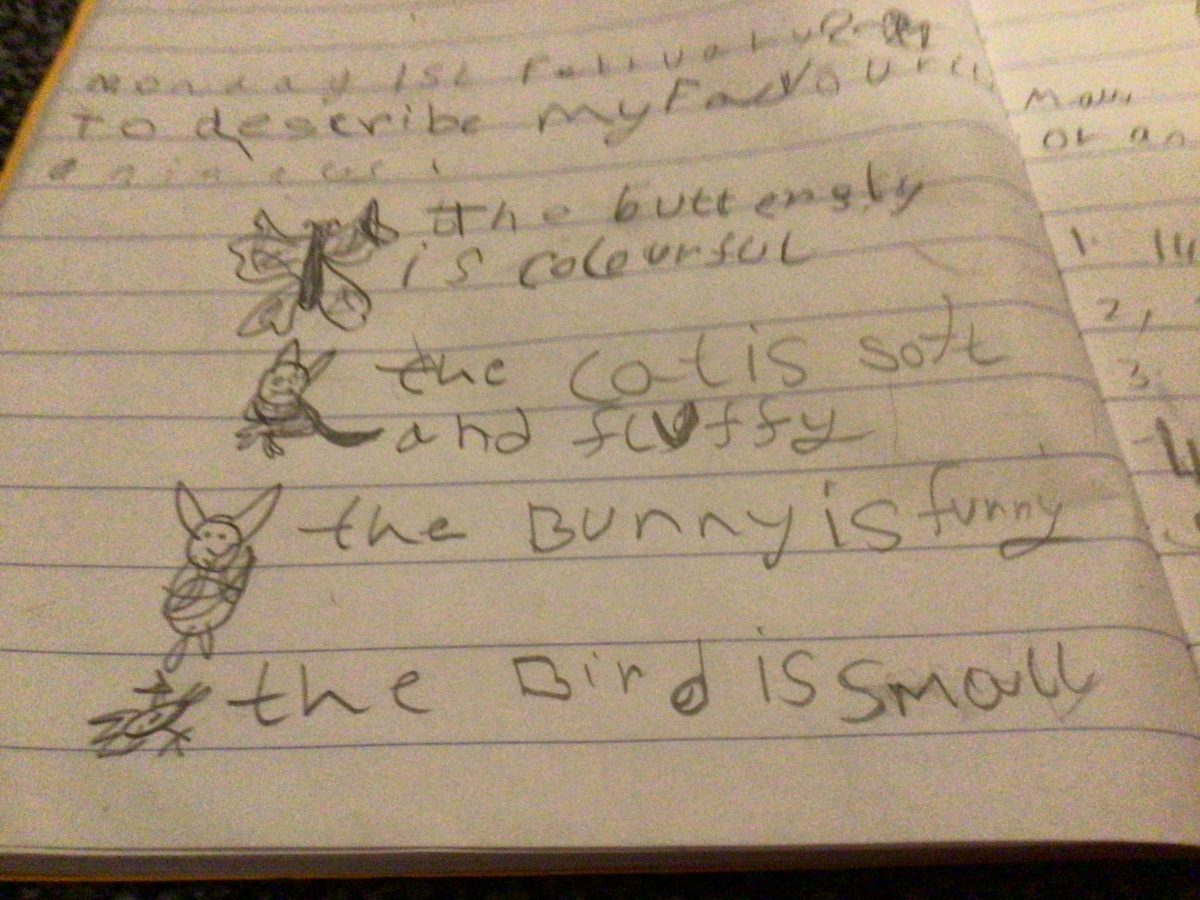 Monday 1st February
To describe my Favourit
the butterfly
is colourful
the cat is soft
and fluffy
the Bunny is funny
the Bird is small
or an
1.
2,
3
4